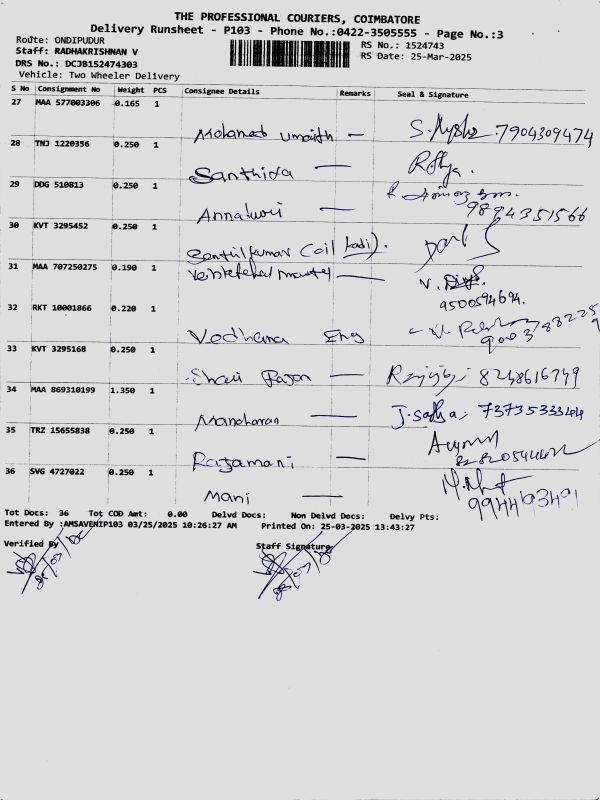 THE PROFESSIONAL COURIERS, COIMBATORE
Delivery Runsheet - P103 - Phone No.:0422-3505555 - Page No.:3
Route: ONDIPUDUR
RS No.: 1524743
Staff: RADHAKRISHNAN V
RS Date: 25-Mar-2025
DRS No.: DCJB152474303
Vehicle: Two Wheeler Delivery
S No Consignment No Weight PCS Consignee Details Remarks Seal & Signature
27 MAA 577003306 0.165 1
Mohamed 7904309474
28 TNJ 1220356 0.250 1
Santhiya —
29 DDG 510813 0.250 1
Annakuri — 9894351566
30 KVT 3295452 0.250 1
Senthilkumar
31 MAA 707250275 0.190 1
V.
9500594694.
32 RKT 10001866 0.220 1
Vedhana Eng
33 KVT 3295168 0.250 1
Rajan — 8248616749
34 MAA 869310199 1.350 1
Manoharan — 7373533344
35 TRZ 15655838 0.250 1
Rajamani —
36 SVG 4727022 0.250 1
Mani — 9944193491
Tot Docs: 36 Tot COD Amt: 0.00 Delvd Docs: Non Delvd Docs: Delvy Pts:
Entered By :AMSAVENIP103 03/25/2025 10:26:27 AM Printed On: 25-03-2025 13:43:27
Verified By Staff Signature